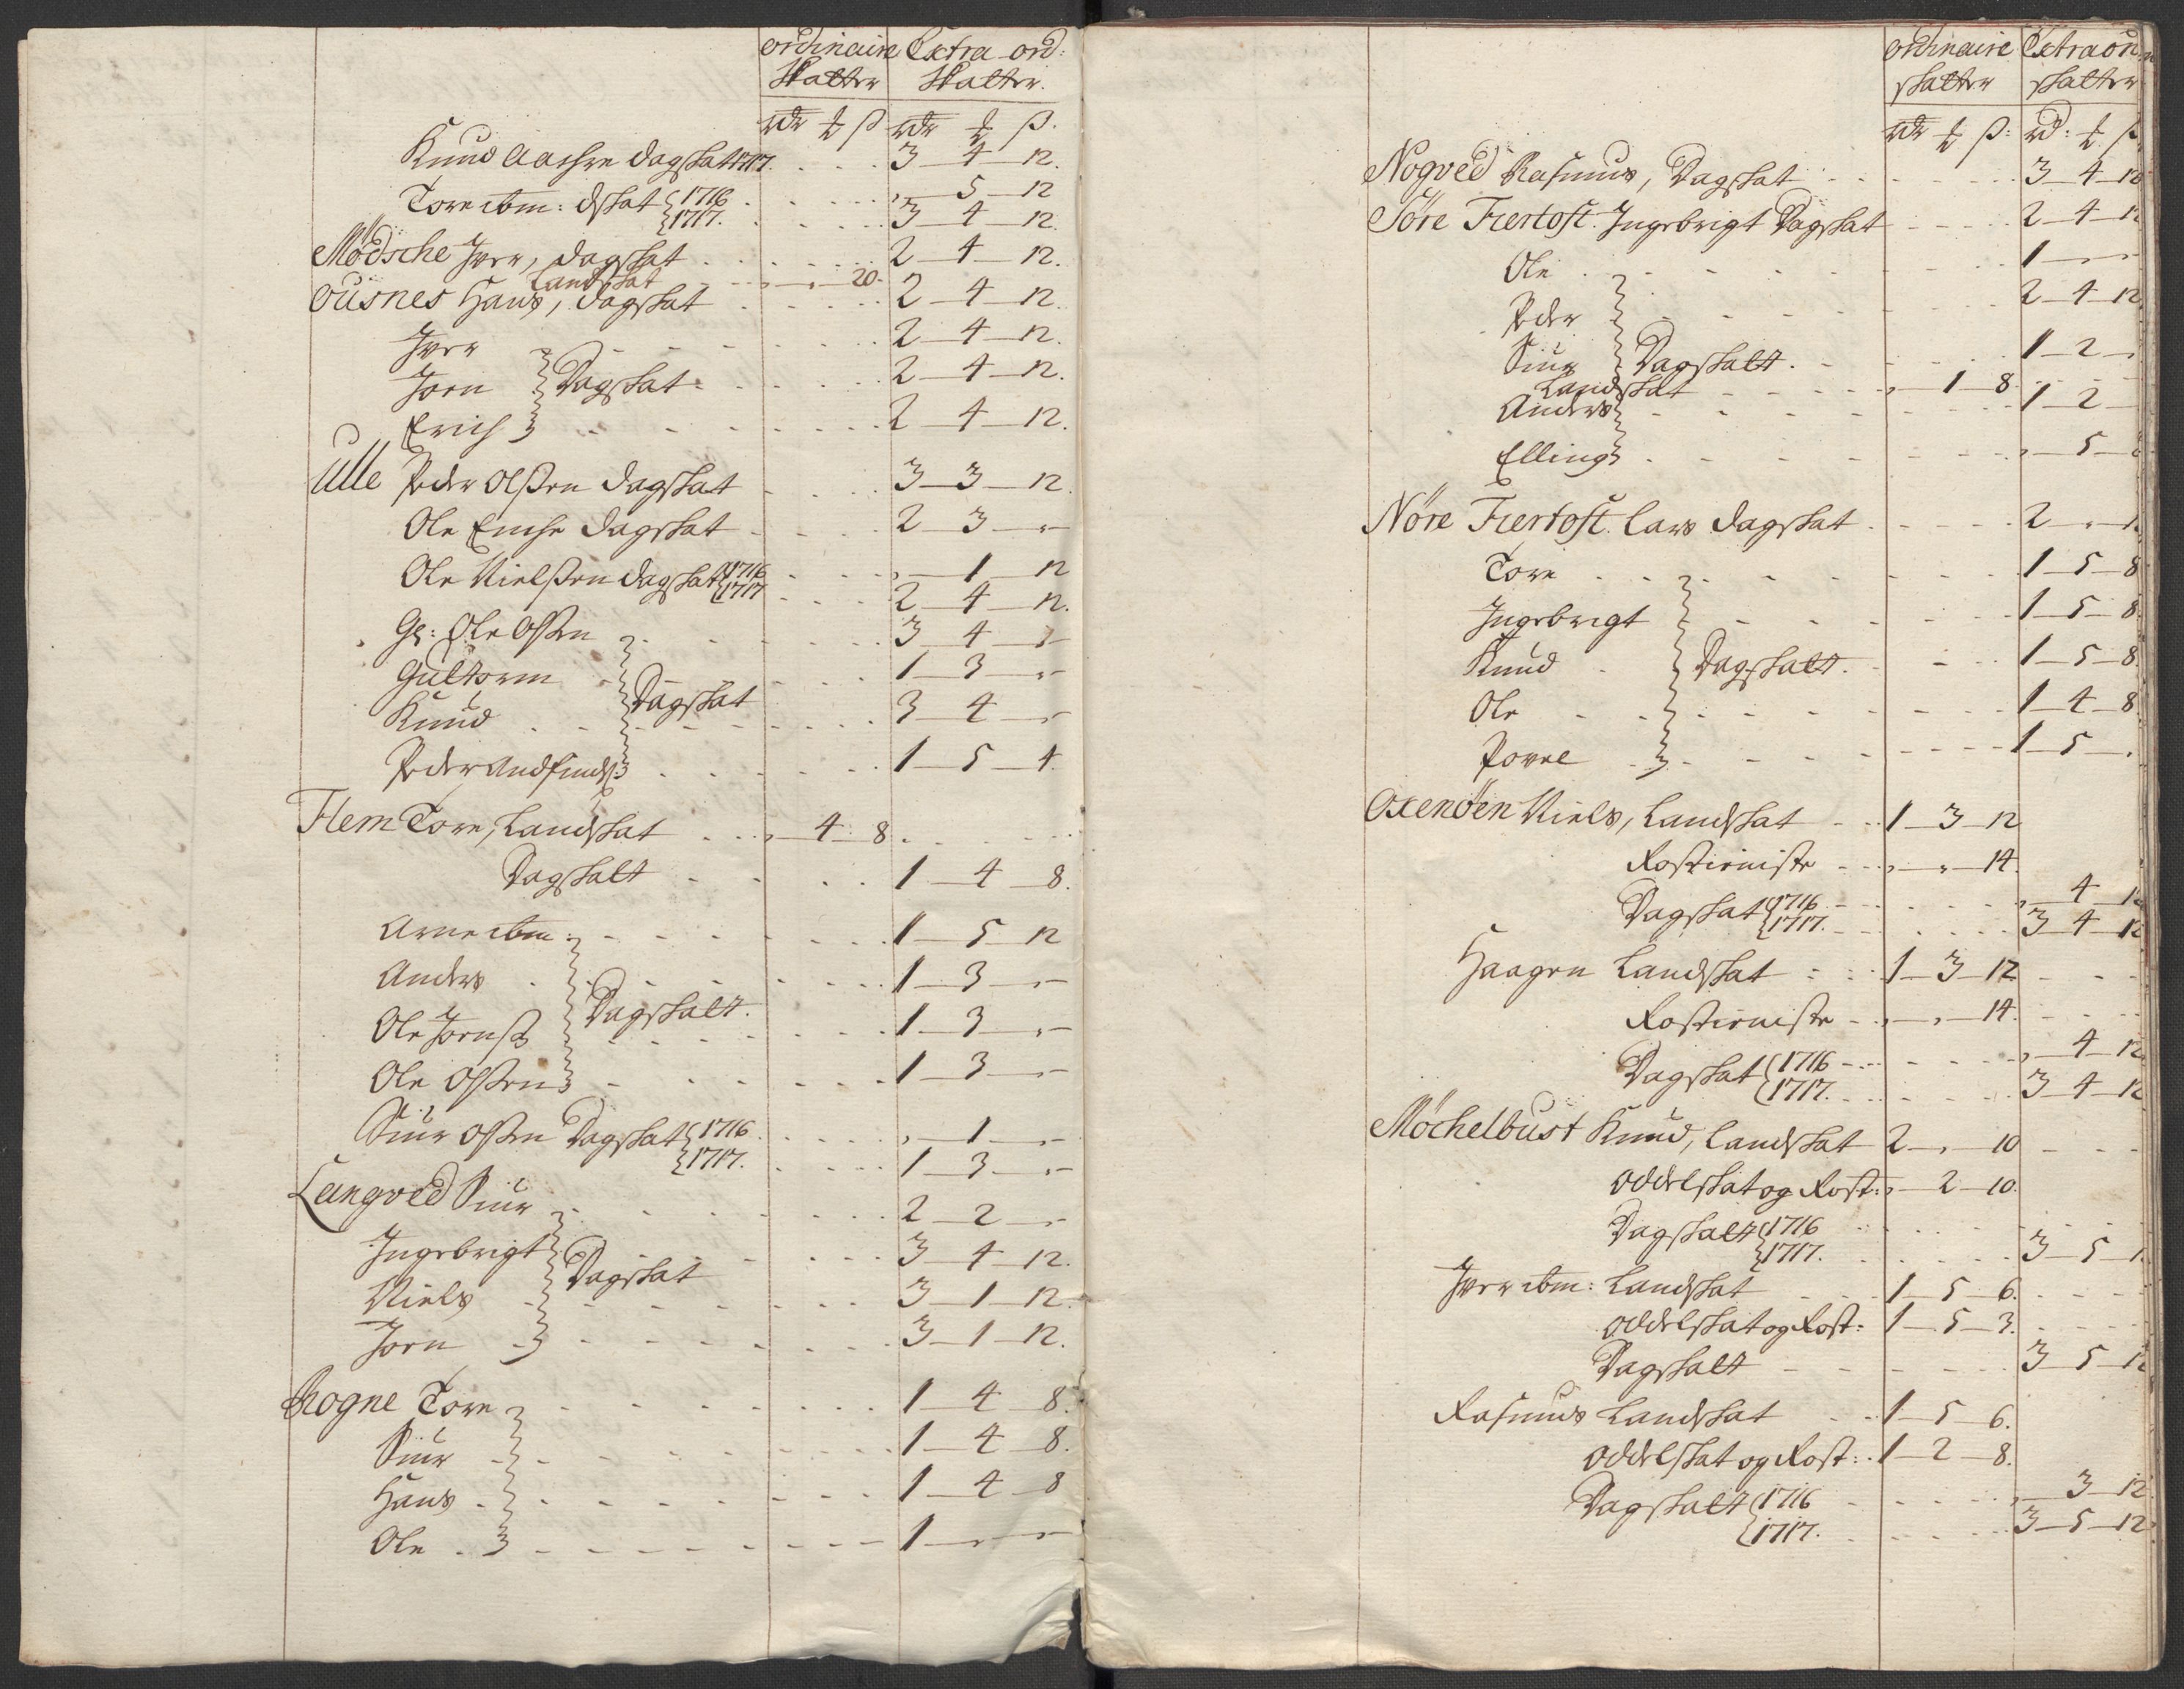 ordinaire Extra ord:
Skatter Skatter.
rdr ₰ ß rdr ₰ ß.
Knud Aachre dagskat 1717. 3 4 12.
Tore ibm: dskat { 1716 , 5 12
{ 1717. 3 4 12.
Mödsche Iver, dagskat 2 4 12.
Landskat , , 20.
Ousnes Hans, dagskat 2 4 12.
Iver 2 4 12.
Jorn } Dagskat 2 4 12.
Erich } 2 4 12.
Ulle Peder Olßen dagskat 3 3 12.
Ole Dagskat 2 3 "
Ole Nielßen dagskat { 1716 , 1 12
{ 1717 2 4 12.
Gl: Ole Olßen 3 4 "
Gultorm 1 3 "
Dagskat
Knud 3 4 "
Peder Andfindß 1 5 4
Flem Tore, Landskat , 4 8
Dagskatt 1 4 8.
Arne ibm: 1 5 12
Anders 1 3 "
Dagskatt.
Ole Jornß 1 3 "
Ole Olßen 1 3 "
Siur Olßen Dagskat { 1716 , 1 "
{ 1717. 1 3 "
Langved Siur 2 2 "
Ingebrigt 3 4 12.
Dagskat
Niels 3 1 12.
Jorn 3 1 12.
Rogne Tore 1 4 8.
Siur 1 4 8.
Hans 1 4 8
Ole 1 " "
ordinaire Extraon
skatter skatter
rdr ₰ ß: rd: ₰ ß
Nogved Rasmus, Dagskat 3 4 12
Söre Fiertoft. Ingebrigt Dagskat 2 4 12
Ole 1 " "
Peder 2 4 12
Siur } Dagskatt. 1 2 "
Landskat , 1 8
Anders 1 2
Elling , 5
Nöre Fiertoft. Lars dagskat 2 "
Tore 1 5 8
Ingebrigt 1 5 8
Knud } Dagskatt. 1 5 8.
Ole 1 4 8
Povel 1 5 "
Oxenöen Niels, Landskat 1 3 12
Rostieniste , " 14.
Dagskat { 1716 , 4 12
{ 1717. 3 4 12
Haagen Landskat 1 3 12
Rostieniste , , 14.
Dagskat { 1716 , 4 12
{ 1717. 3 4 12
Möchelbust Knud, Landskat 2 , 10
Oddelskat og Rost: , 2 10.
Dagskatt { 1716
{ 1717. 3 5
Iver ibm: Landskat 1 5 6.
Oddelskat og Rost: 1 5 3.
Dagskatt 3 5 12
Rasmus Landskat 1 5 6.
Oddelskat og Rost: 1 2 8.
Dagskatt { 1716 , 3 12.
{ 1717. 3 5 12